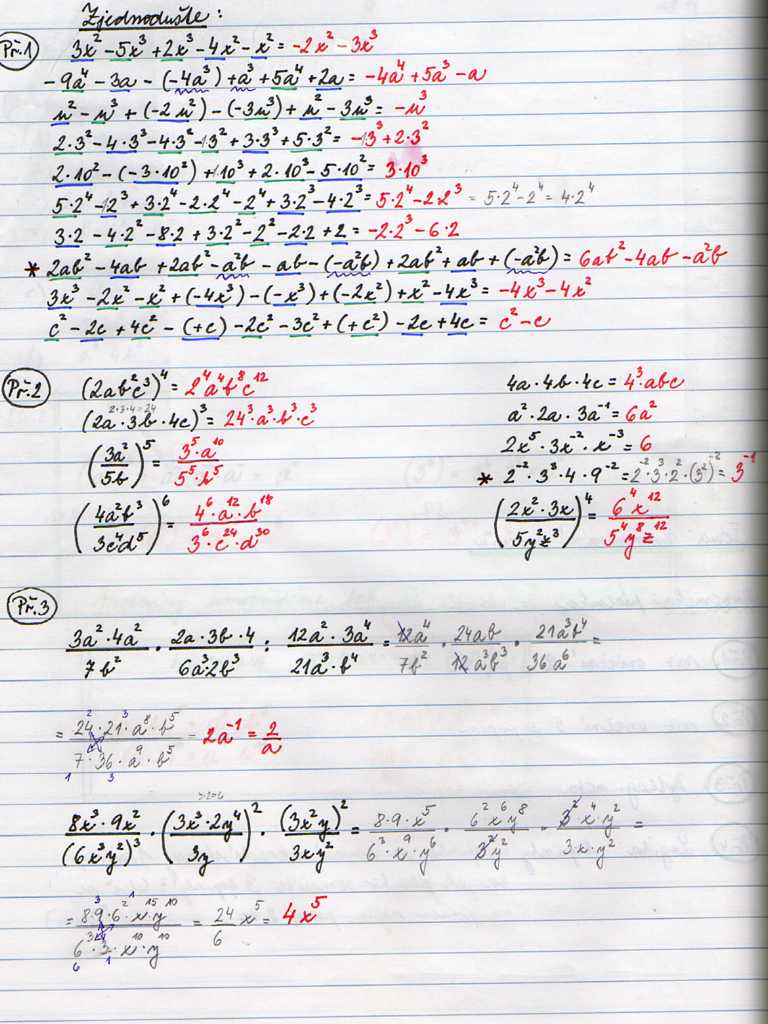 Zjednodušte:
Př.1 3x² - 5x³ + 2x³ - 4x² - x² = -2x² - 3x³
- 9a⁴ - 3a - (-4a³) + a³ + 5a⁴ + 2a = -4a⁴ + 5a³ - a
n² - n³ + (-2n²) - (-3n³) + n² - 3n³ = -n³
2·3² - 4·3³ - 4·3² - 1·3² + 3·3³ + 5·3² = -1·3³ + 2·3²
2·10² - (-3·10²) + 10³ + 2·10³ - 5·10² = 3·10³
5·2⁴ - 1·2³ + 3·2⁴ - 2·2⁴ - 2⁴ + 3·2³ - 4·2³ = 5·2⁴ - 2·2³ = 5·2⁴ - 2⁴ = 4·2⁴
3·2 - 4·2² - 8·2 + 3·2² - 2² - 2·2 + 2 = -2·2³ - 6·2
* 2ab² - 4ab + 2ab² - a²b - ab - (-a²b) + 2ab² + ab + (-a²b) = 6ab² - 4ab - a²b
3x³ - 2x² - x² + (-4x³) - (-x³) + (-2x²) + x² - 4x³ = -4x³ - 4x²
c² - 2c + 4c² - (+c) - 2c² - 3c² + (+c²) - 2c + 4c = c² - c
Př.2 (2ab²c³)⁴ = 2⁴a⁴b⁸c¹²
2·3·4=24
(2a·3b·4c)³ = 24³·a³·b³·c³
(3a²/5b)⁵ = 3⁵·a¹⁰/5⁵·b⁵
(4a²b³/3c⁴d⁵)⁶ = 4⁶·a¹²·b¹⁸/3⁶·c²⁴·d³⁰
4a·4b·4c = 4³·abc
a²·2a·3a⁻¹ = 6a²
2x⁵·3x⁻²·x⁻³ = 6
* 2⁻²·3³·4·9⁻² = 2⁻²·3³·2²·(3²)⁻² = 3⁻¹
(2x²·3x/5y²z³)⁴ = 6⁴x¹²/5⁴y⁸z¹²
Př.3
3a²·4a²/7b² · 2a·3b·4/6a³·2b³ : 12a²·3a⁴/21a³·b⁴ = 12a⁴/7b² · 24ab/12a³b³ · 21a³b⁴/36a⁶ =
= 24·21·a⁸·b⁵/7·36·a⁹·b⁵ = 2a⁻¹ = 2/a
8x³·9x²/(6x³y²)³ · (3x³·2y⁴/3y)² · (3x²y)²/3xy² = 8·9·x⁵/6³·x⁹·y⁶ · 6²x⁶y⁸/3²y² · 3²·x⁴·y²/3x·y² =
= 8·9·6²·x¹⁵y¹⁰/6³·3·x¹⁰·y¹⁰ = 24/6 x⁵ = 4x⁵